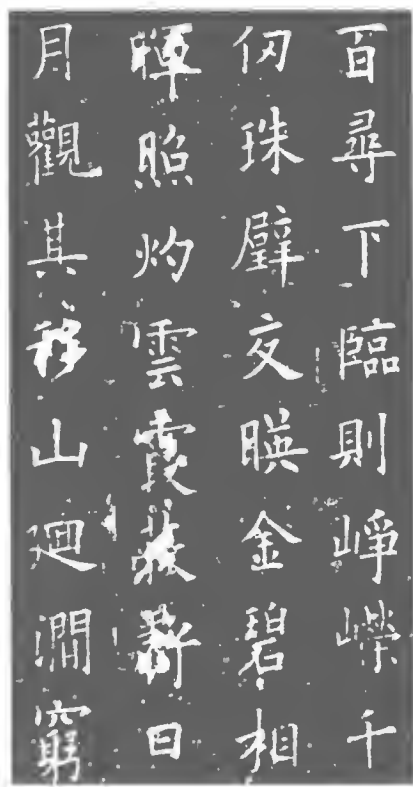 百尋下臨則崢嶸千
仞珠璧交暎金碧相
暉照灼雲霞蔽虧日
月觀其移山廻澗窮